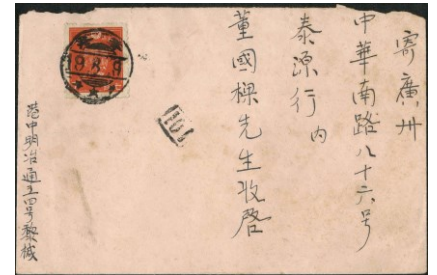 寄廣州
中華南路八十六号
泰源行内
董國樑先生收啓
港中明治通五四号黎械